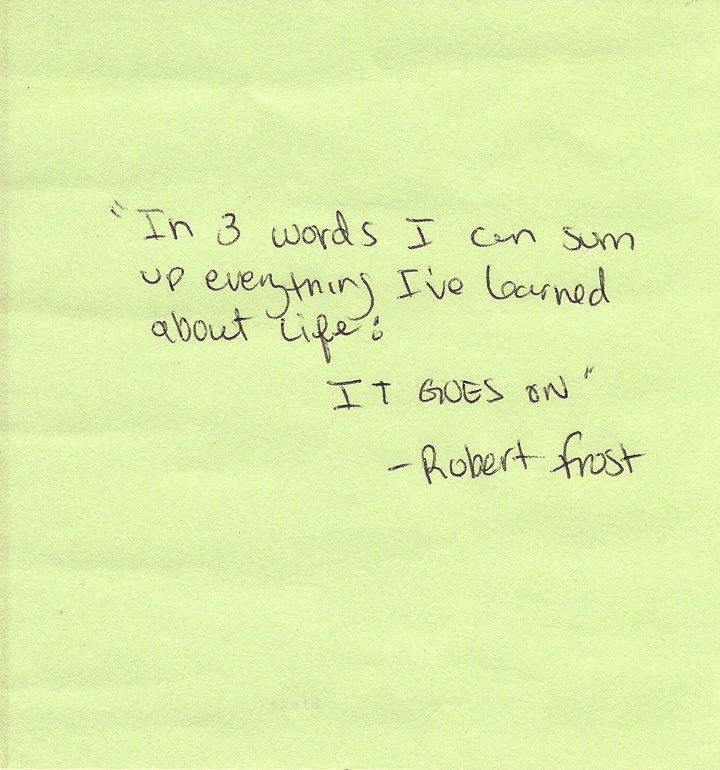 "In 3 words I can sum
up everything I've learned
about life:
IT GOES ON"
-Robert frost